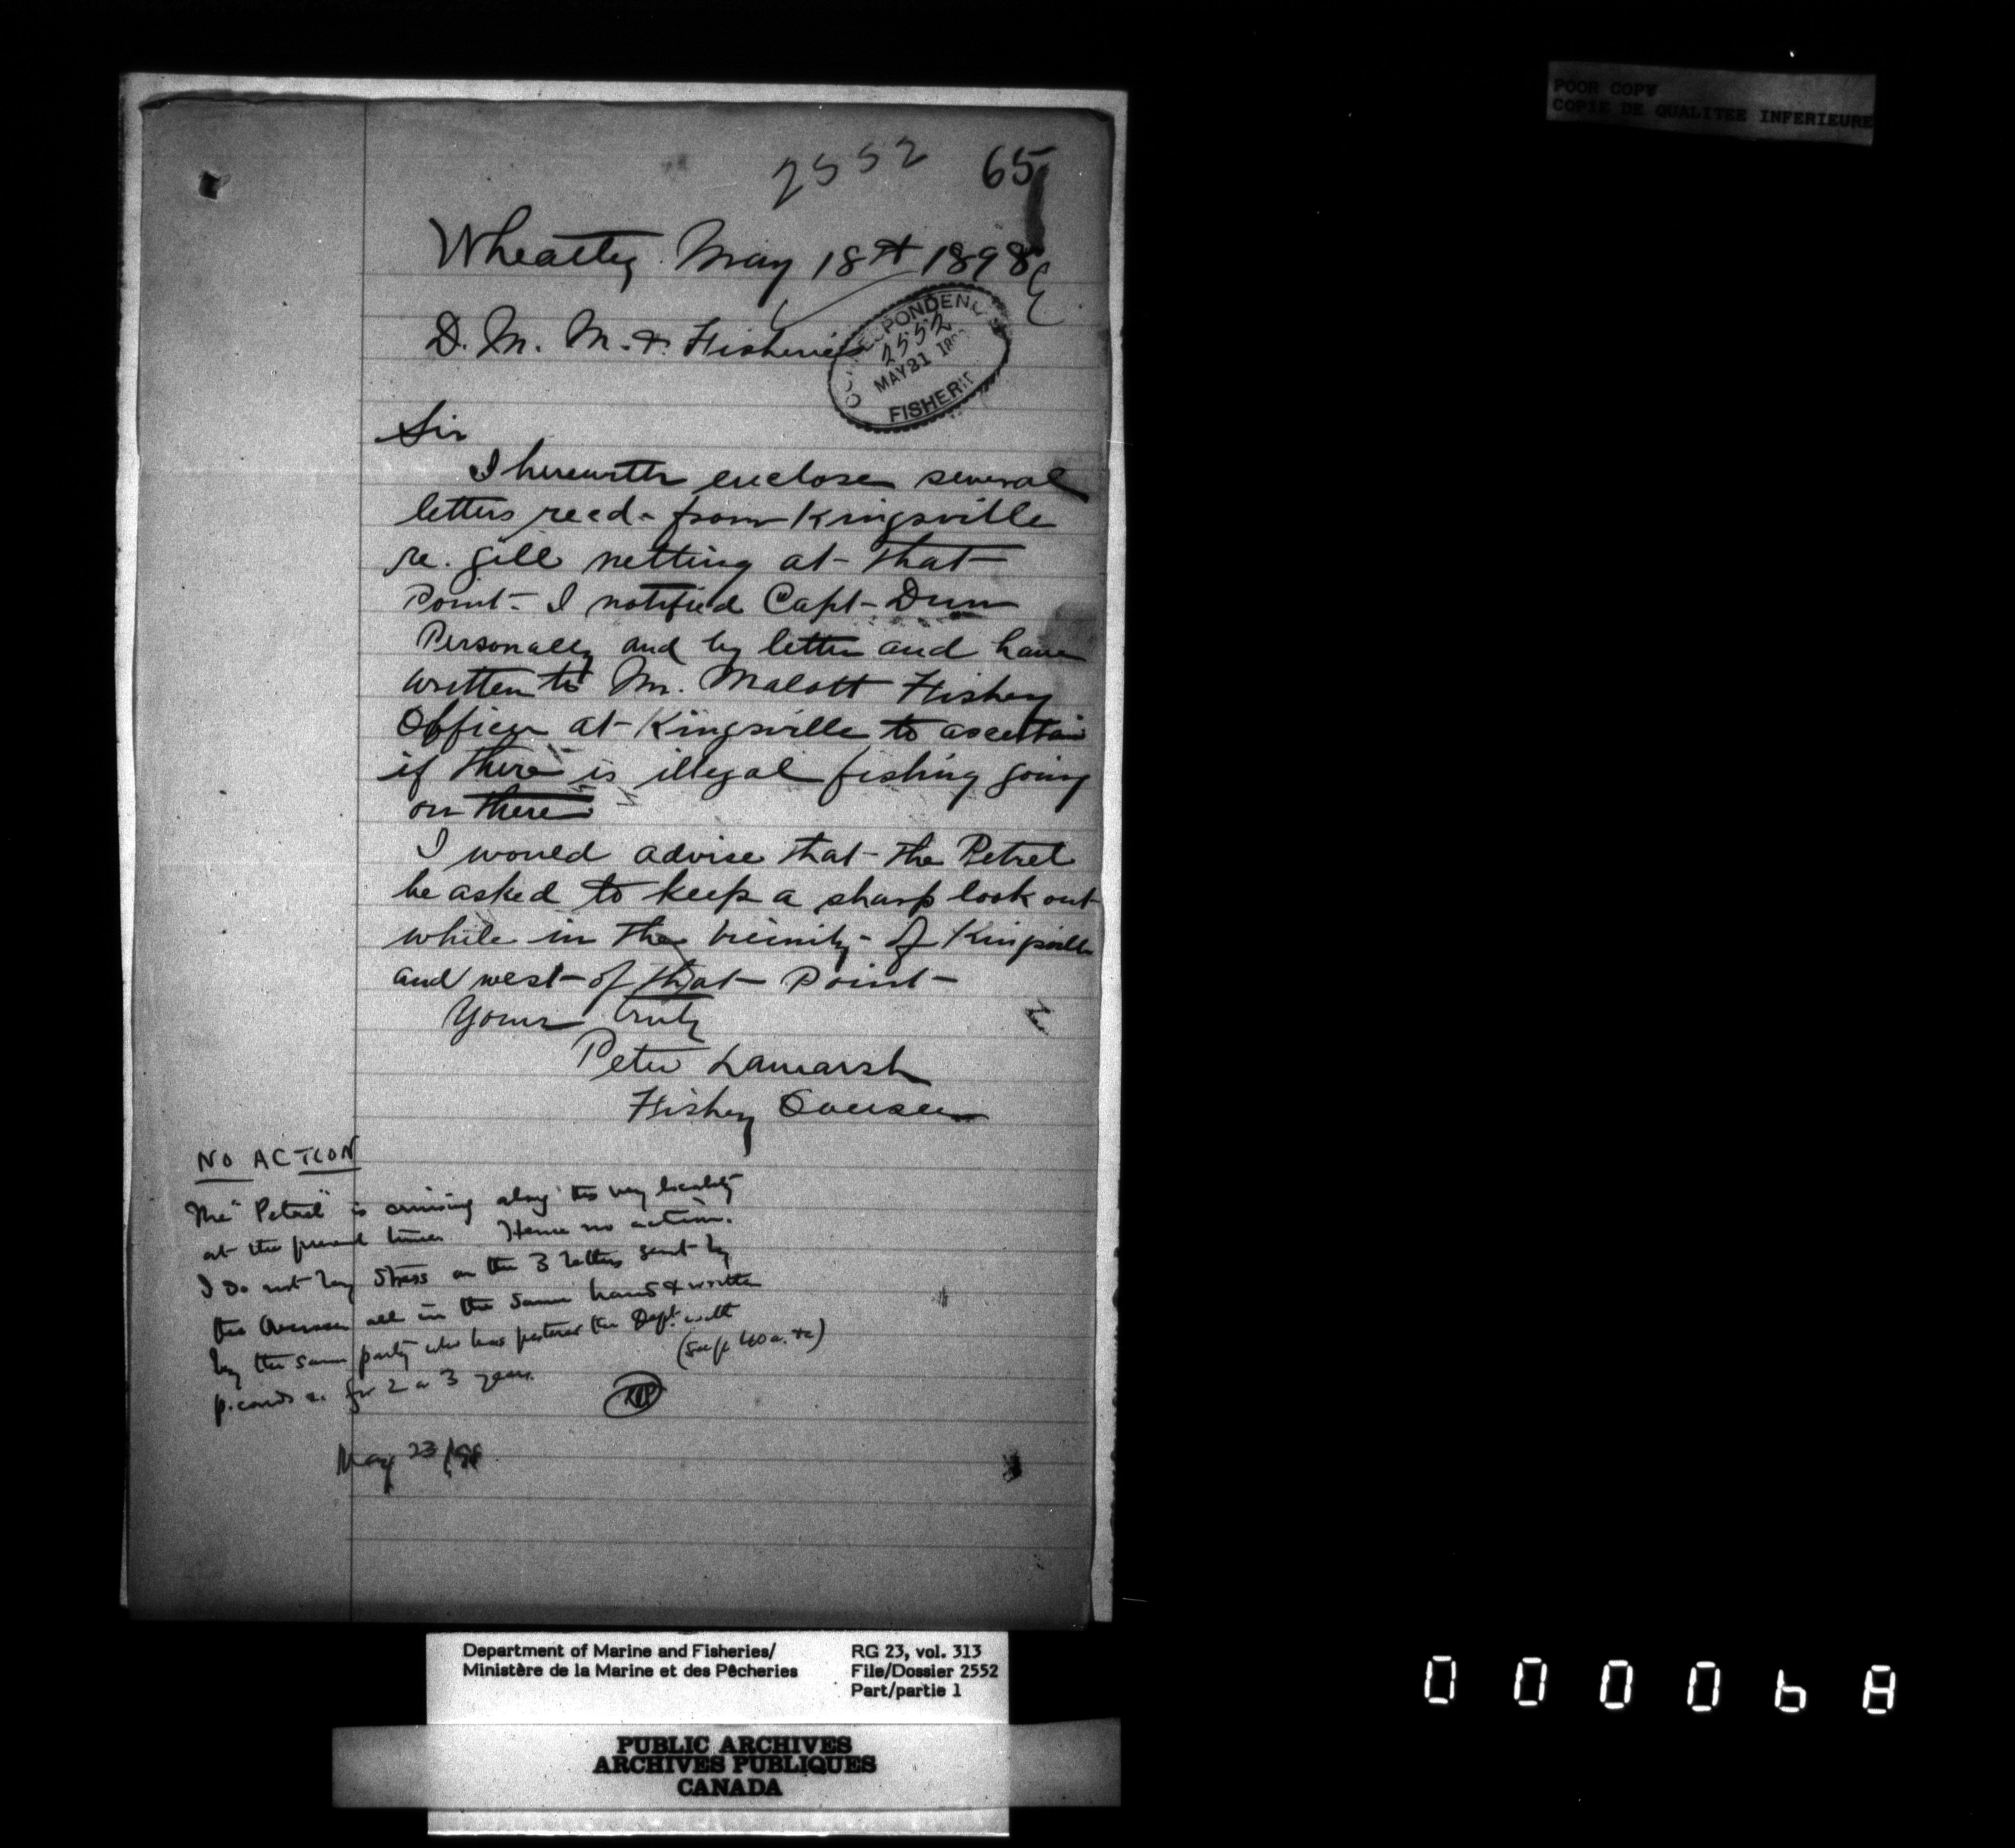 POOR COPY
COPIE DE QUALITEE INFERIEURE
2552 65
Wheatley May 18th 1898
D. M. M. & Fisheries
CORRESPONDENCE
2552
MAY 21 18
FISHERIE
Sir
I herewith enclose several
letters recd - from Kingsville
re. gill netting at - that -
Point - I notified Capt - Dunn
Personally and by letter and have
written to Mr. Malott Fishery
Officer at - Kingsville to ascertain
if there is illegal fishing going
on there
I would advise that - the Petrel
be asked to keep a sharp look out
while in the vicinity - of Kingsville
and west - of that - Point -
Yours truly
Peter Lamarsh
Fishery Overseer
NO ACTION
The "Petrel" is cruising along this very locality
at the present time. Hence no action.
I do not lay stress on the 3 letters sent by
the Overseer all in the same hand & written
by the same party who has pestered the Dept. with
p. cards &. for 2 or 3 years.
(See p 40 a. &c)
May 23/98
Department of Marine and Fisheries/
Ministère de la Marine et des Pêcheries
RG 23, vol. 313
File/Dossier 2552
Part/partie 1
PUBLIC ARCHIVES
ARCHIVES PUBLIQUES
CANADA
000068